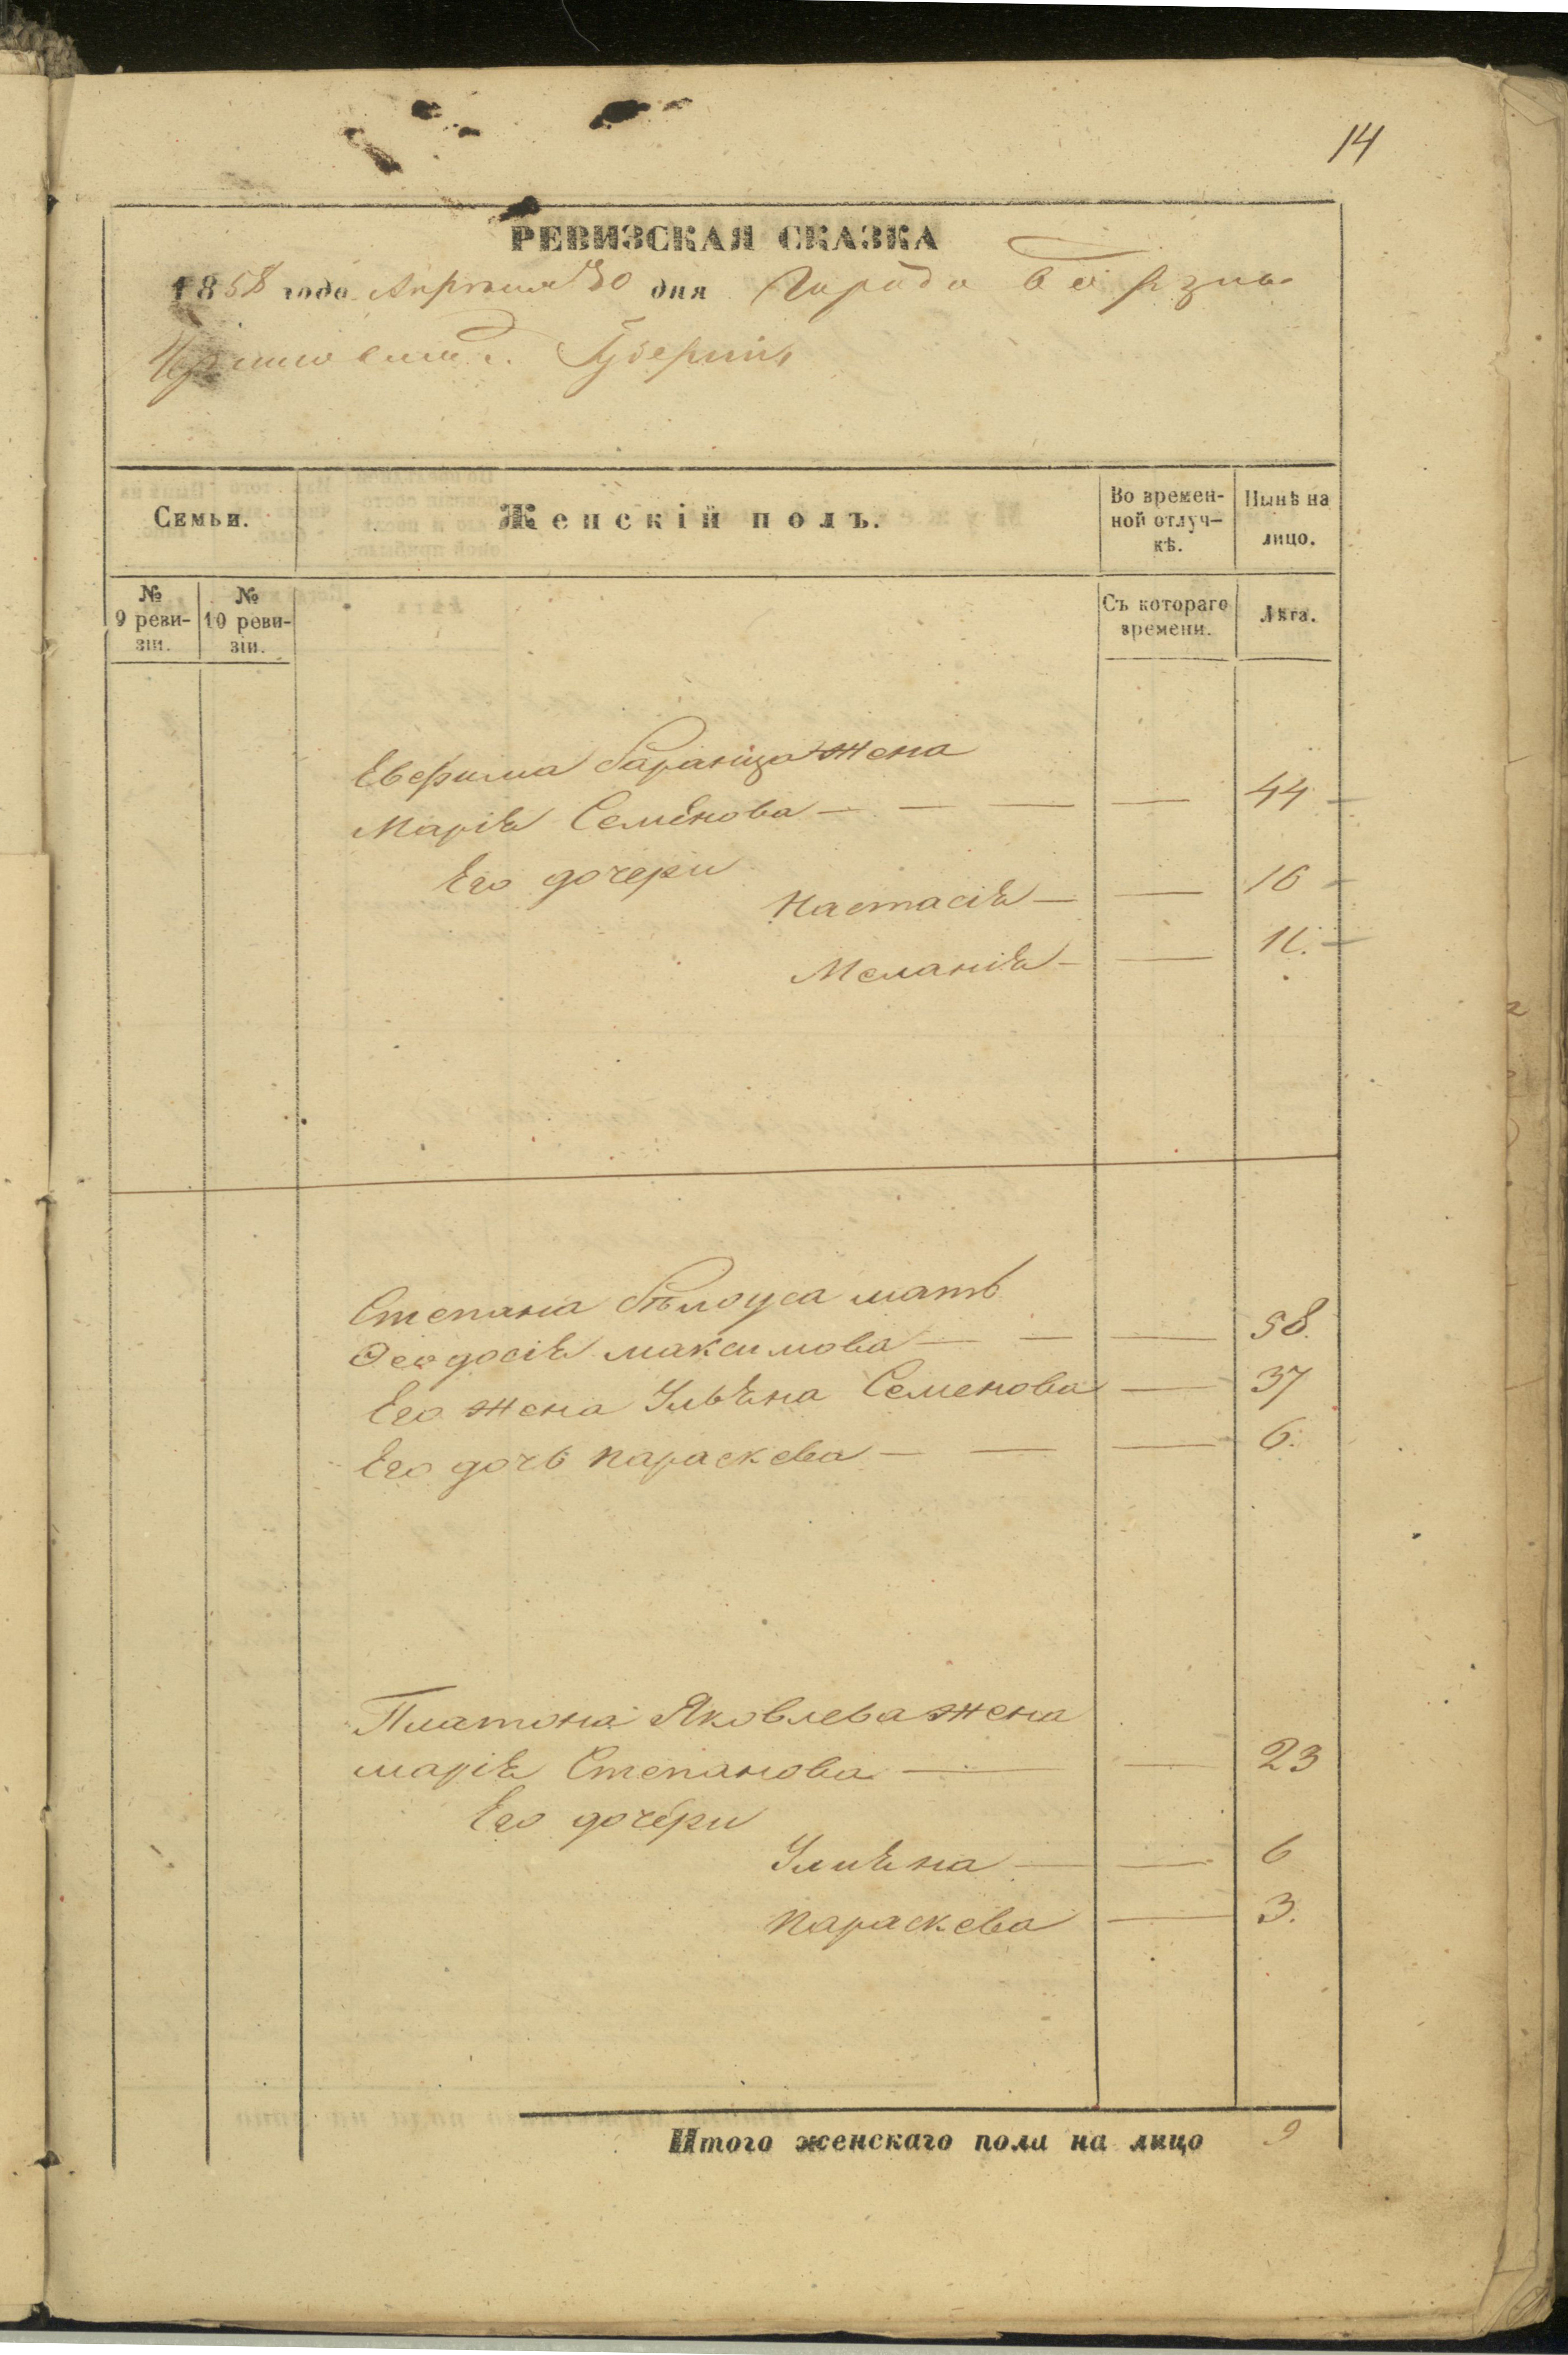 14
РЕВИЗСКАЯ СКАЗКА
1858 года Апрѣля 30 дня Города Борзны
Черниговской Губерніи
Семьи.
Женскій полъ.
Во времен-
ной отлуч-
кѣ.
Нынѣ на
лицо.
№
9 реви-
зіи.
№
10 реви-
зіи.
Съ котораго
времени.
Лѣта.
Евфима Баранца жена
Марія Семенова — — — — 44
Его дочери
Настасія — — 16
Меланія — — 11.
Степана Бѣлоуса мать
Ѳеодосія Максимова — — — 58.
Его жена Ульяна Семенова — 37
Его дочь Параскева — — — 6.
Платона Яковлева жена
Марія Степанова — — 23
Его дочери
Улияна — — 6
Параскева — 3.
Итого женскаго пола на лицо 9